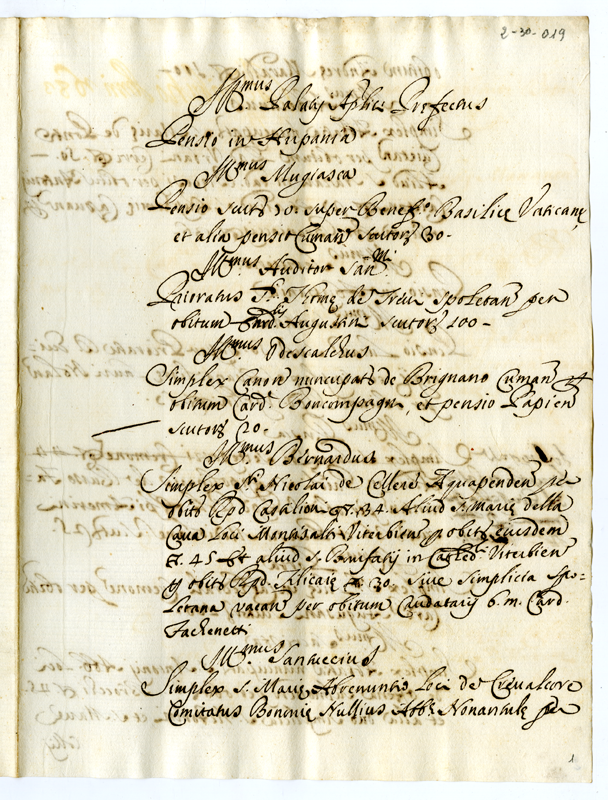 2-30-019
Illmus Palatij Aplici Prefectus
Pensio in Hispania
Illmus Mugiasca
Pensio scutor 70. super Benefo. Basilice Vaticane,
et alia pensio Cuman scutor 30-
Illmus Auditor Sanmi
Prioratus S. Thome de Treui Spoletan per
obitum Cardlis Augustini scutor 100-
Illmus Odescalchus
Simplex Canon nuncupats de Brignano Cuman
obitum Card. Boncompagni, et pensio Papien
scutor 20-
Illmus Bernardus
Simplex Sti Nicolai de Cellere Aquapenden per
obitu Rpd Castilion 34. Aliud S. Marie della
Caua Loci Montisalti Viterbien p obitu eiusdem
45 Et aliud S. Bonifatij in Cathedli Viterbien
p obitu Rpd. 30. siue simplicia Spo-
letana vacan per obitum Caudatarij b. m. Card.
Fachenetti
Illmus Santuccius
Simplex S. Marie Abrenuntio Loci de Creualcore
Comitatus Bononie Nullius Abb. Nonantule per
1